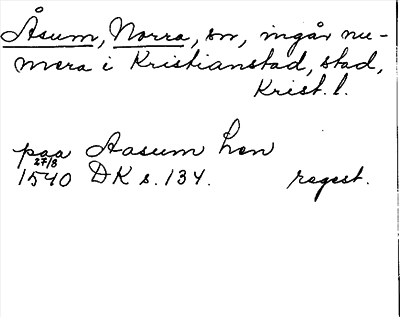 Åsum, Norra, sn, ingår nu-
mera i Kristianstad, stad,
Krist. l.
paa Aasum hen
27/8
1540 DK s. 134. regest.